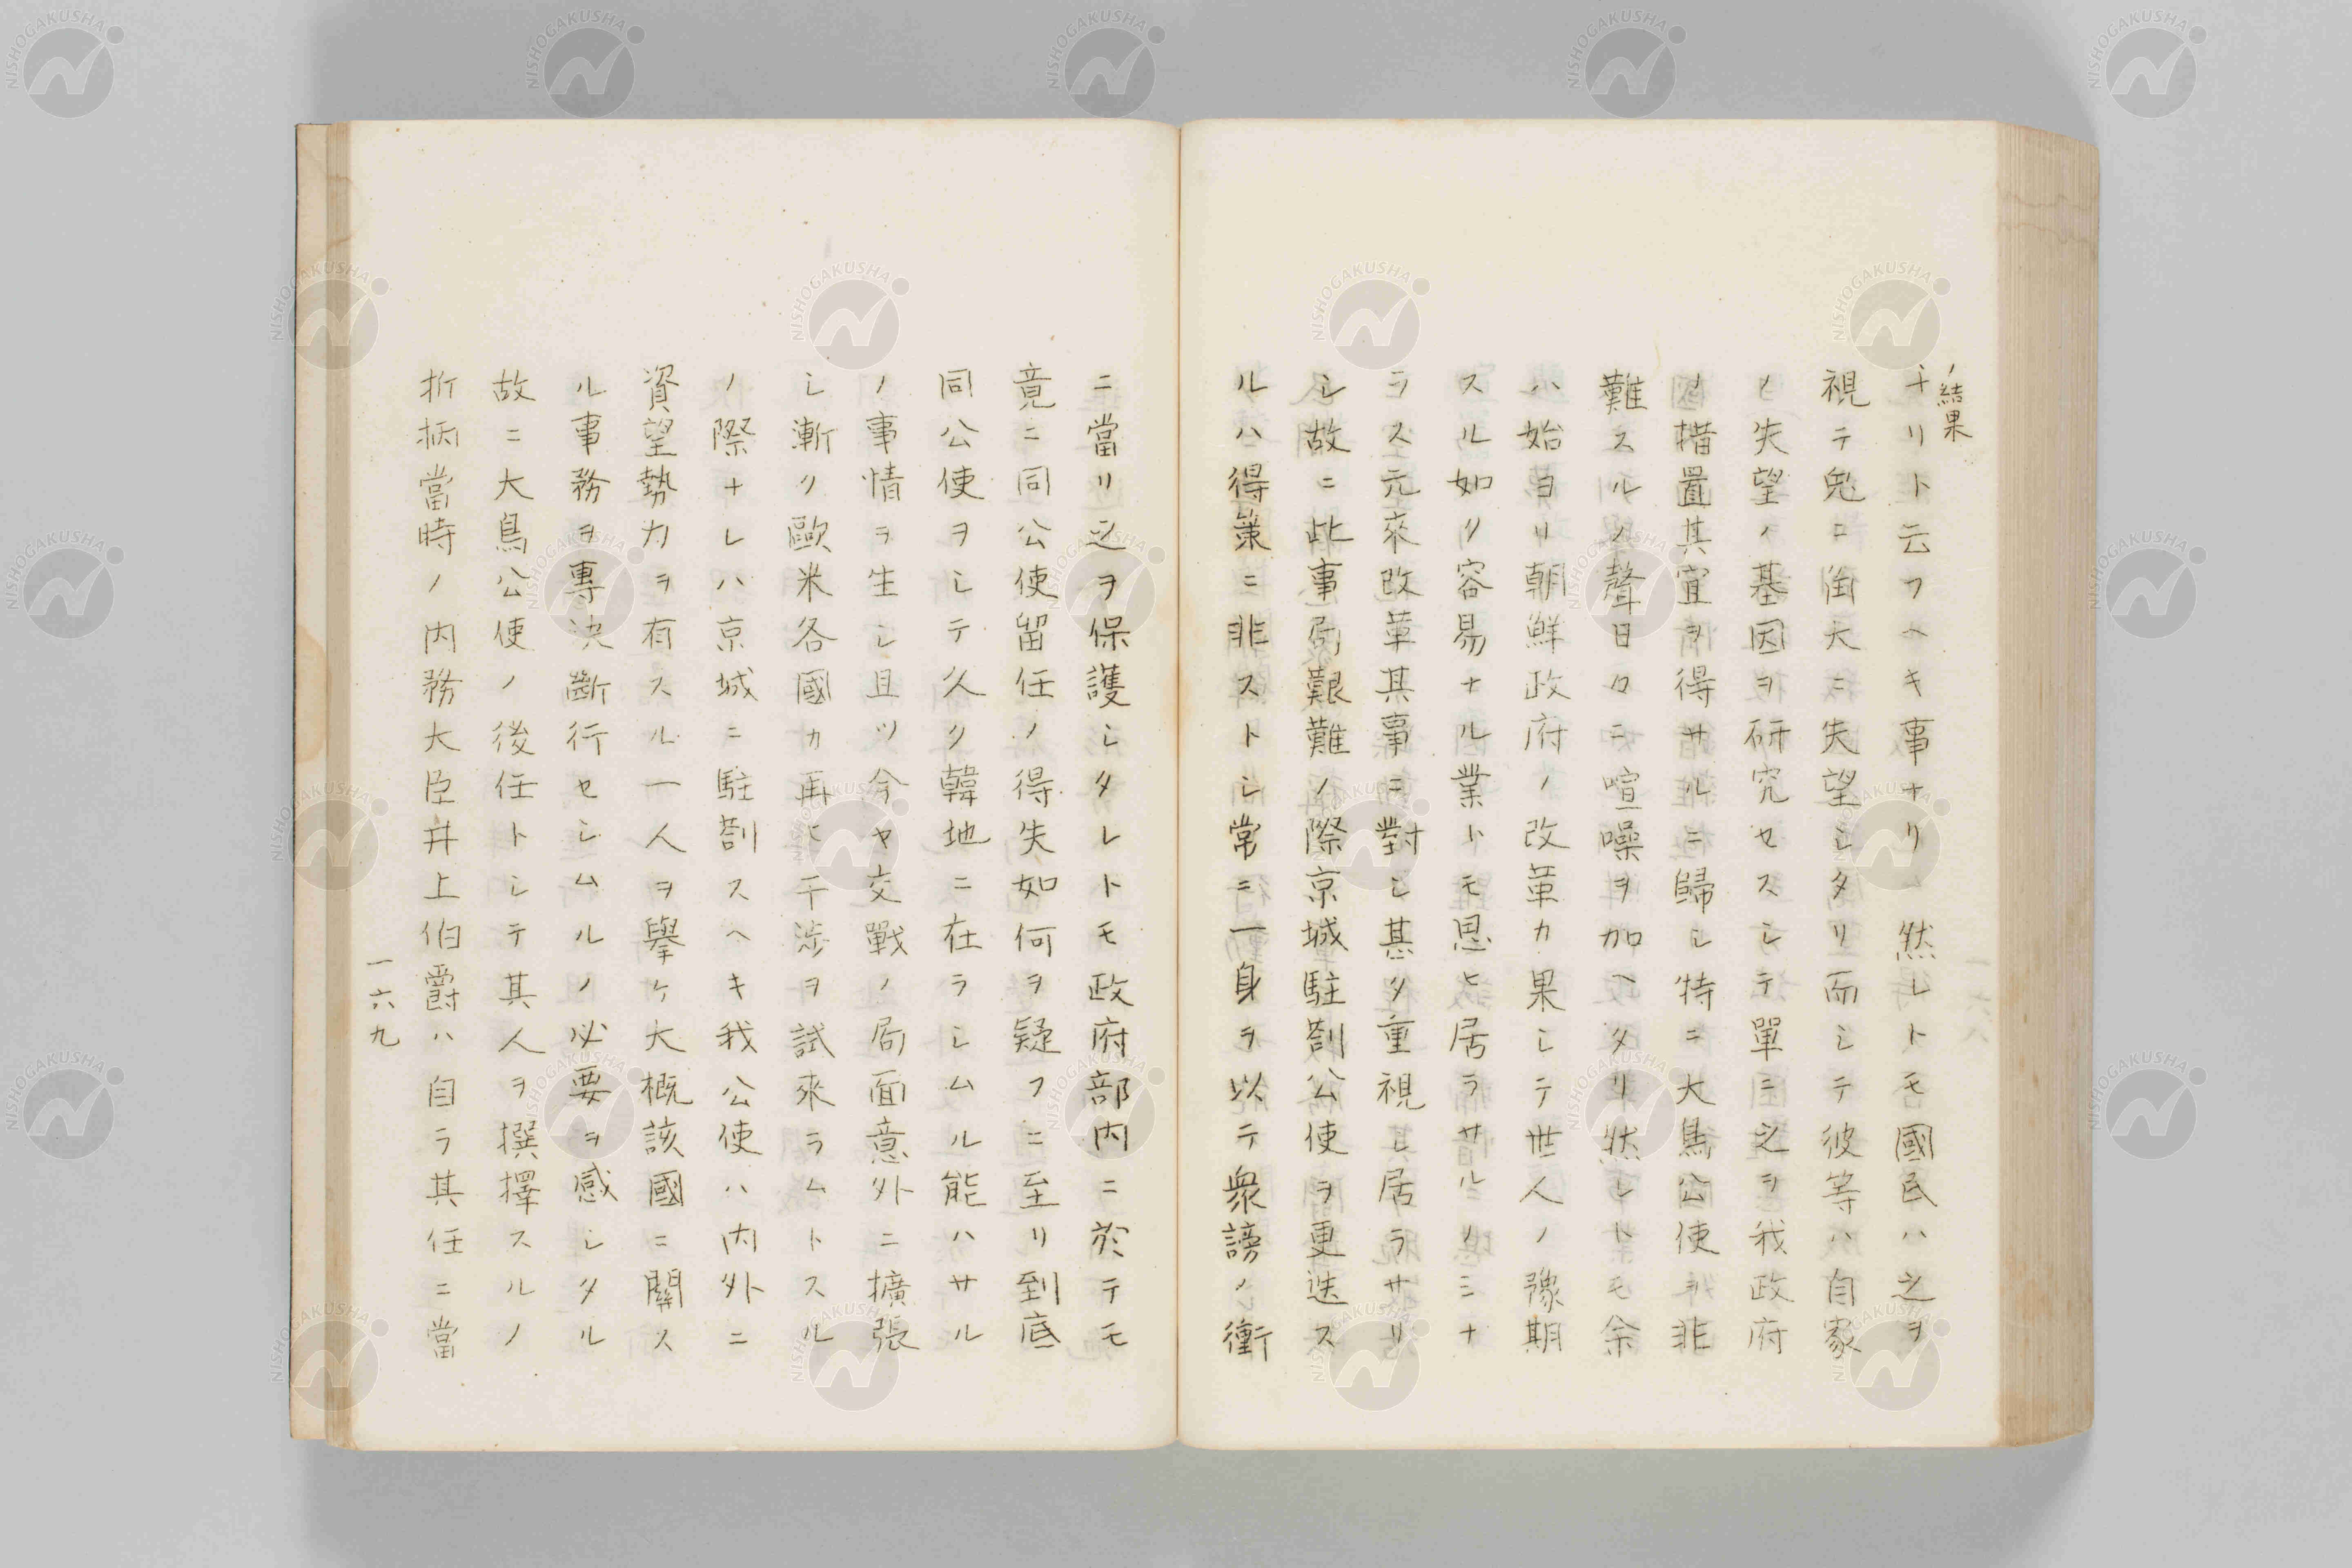 ノ結果
ナリト云フヘキ事ナリ 然レトモ國民ハ之ヲ
視テ兎ニ角大ニ失望シタリ而シテ彼等ハ自家
ノ失望ノ基因ヲ研究セスシテ單ニ之ヲ我政府
ノ措置其宜ヲ得サルニ歸シ特ニ大鳥公使ヲ非
難スルノ聲日々ニ喧噪ヲ加ヘタリ然レトモ余
ハ始ヨリ朝鮮政府ノ改革カ果シテ世人ノ豫期
スル如ク容易ナル業トモ思ヒ居ラサルノミナ
ラス元來改革其事ニ對シ甚タ重視シ居ラサリ
シ故ニ此事局艱難ノ際京城駐劄公使ヲ更迭ス
ルハ得策ニ非ストシ常ニ一身ヲ以テ衆謗ノ衝
ニ當リ之ヲ保護シタレトモ政府部内ニ於テモ
竟ニ同公使留任ノ得失如何ヲ疑フニ至リ到底
同公使ヲシテ久ク韓地ニ在ラシムル能ハサル
ノ事情ヲ生シ且ツ今ヤ交戰ノ局面意外ニ擴張
シ漸ク歐米各國カ再ヒ干渉ヲ試來ラムトスル
ノ際ナレハ京城ニ駐劄スヘキ我公使ハ内外ニ
資望勢力ヲ有スル一人ヲ擧ケ大概該國ニ關ス
ル事務ヲ專決斷行セシムルノ必要ヲ感シタル
故ニ大鳥公使ノ後任トシテ其人ヲ撰擇スルノ
折柄當時ノ内務大臣井上伯爵ハ自ラ其任ニ當
一六九
NISHOGAKUSHA